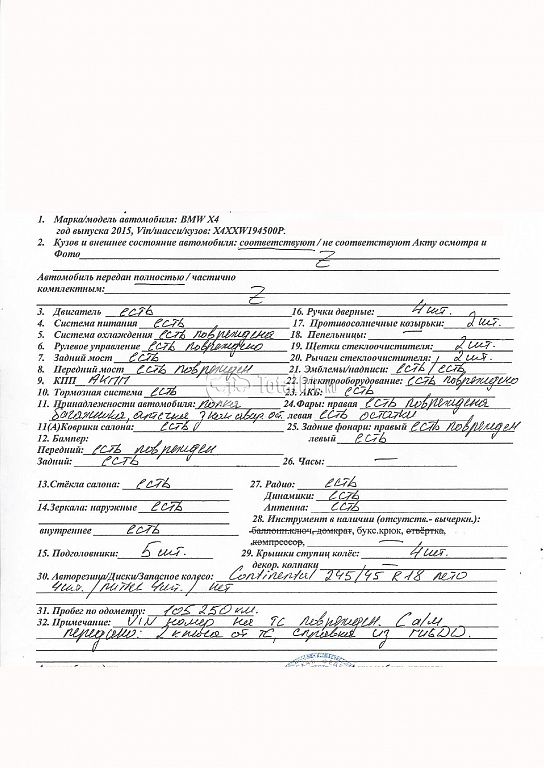 1. Марка/модель автомобиля: BMW X4
год выпуска 2015, Vin/шасси/кузов: X4XXW194500P.
2. Кузов и внешнее состояние автомобиля: соответствуют / не соответствуют Акту осмотра и
Фото Z
Автомобиль передан полностью / частично
комплектным: Z
3. Двигатель есть
4. Система питания есть
5. Система охлаждения есть повреждена
6. Рулевое управление есть повреждено
7. Задний мост есть
8. Передний мост есть поврежден
9. КПП АКПП
10. Тормозная система есть
11. Принадлежности автомобиля: полка
багажника,
11(А)Коврики салона: есть
12. Бампер:
Передний: есть поврежден
Задний: есть
13.Стёкла салона: есть
14.Зеркала: наружные есть
внутреннее есть
15. Подголовники: 5 шт.
16. Ручки дверные: 4 шт.
17. Противосолнечные козырьки: 2 шт.
18. Пепельницы: —
19. Щетки стеклоочистителя: 2 шт.
20. Рычаги стеклоочистителя: 2 шт.
21. Эмблемы/надписи: есть / есть
22. Электрооборудование: есть повреждено
23. АКБ: есть
24.Фары: правая есть повреждена
левая есть остатки
25. Задние фонари: правый есть поврежден
левый есть
26. Часы: —
27. Радио: есть
Динамики: есть
Антенна: есть
28. Инструмент в наличии (отсутств.- вычеркн.):
баллонн.ключ, домкрат, букс.крюк, отвёртка,
компрессор, —
29. Крышки ступиц колёс: 4 шт.
декор. колпаки —
30. Авторезина/Диски/Запасное колесо: Continental 245/45 R18 лето
4 шт. / литые 4 шт. / нет
31. Пробег по одометру: 105 250 км.
32. Примечание: VIN номер на ТС поврежден. С а/м
передано: 2 ключа от ТС, справка из ГИБДД.